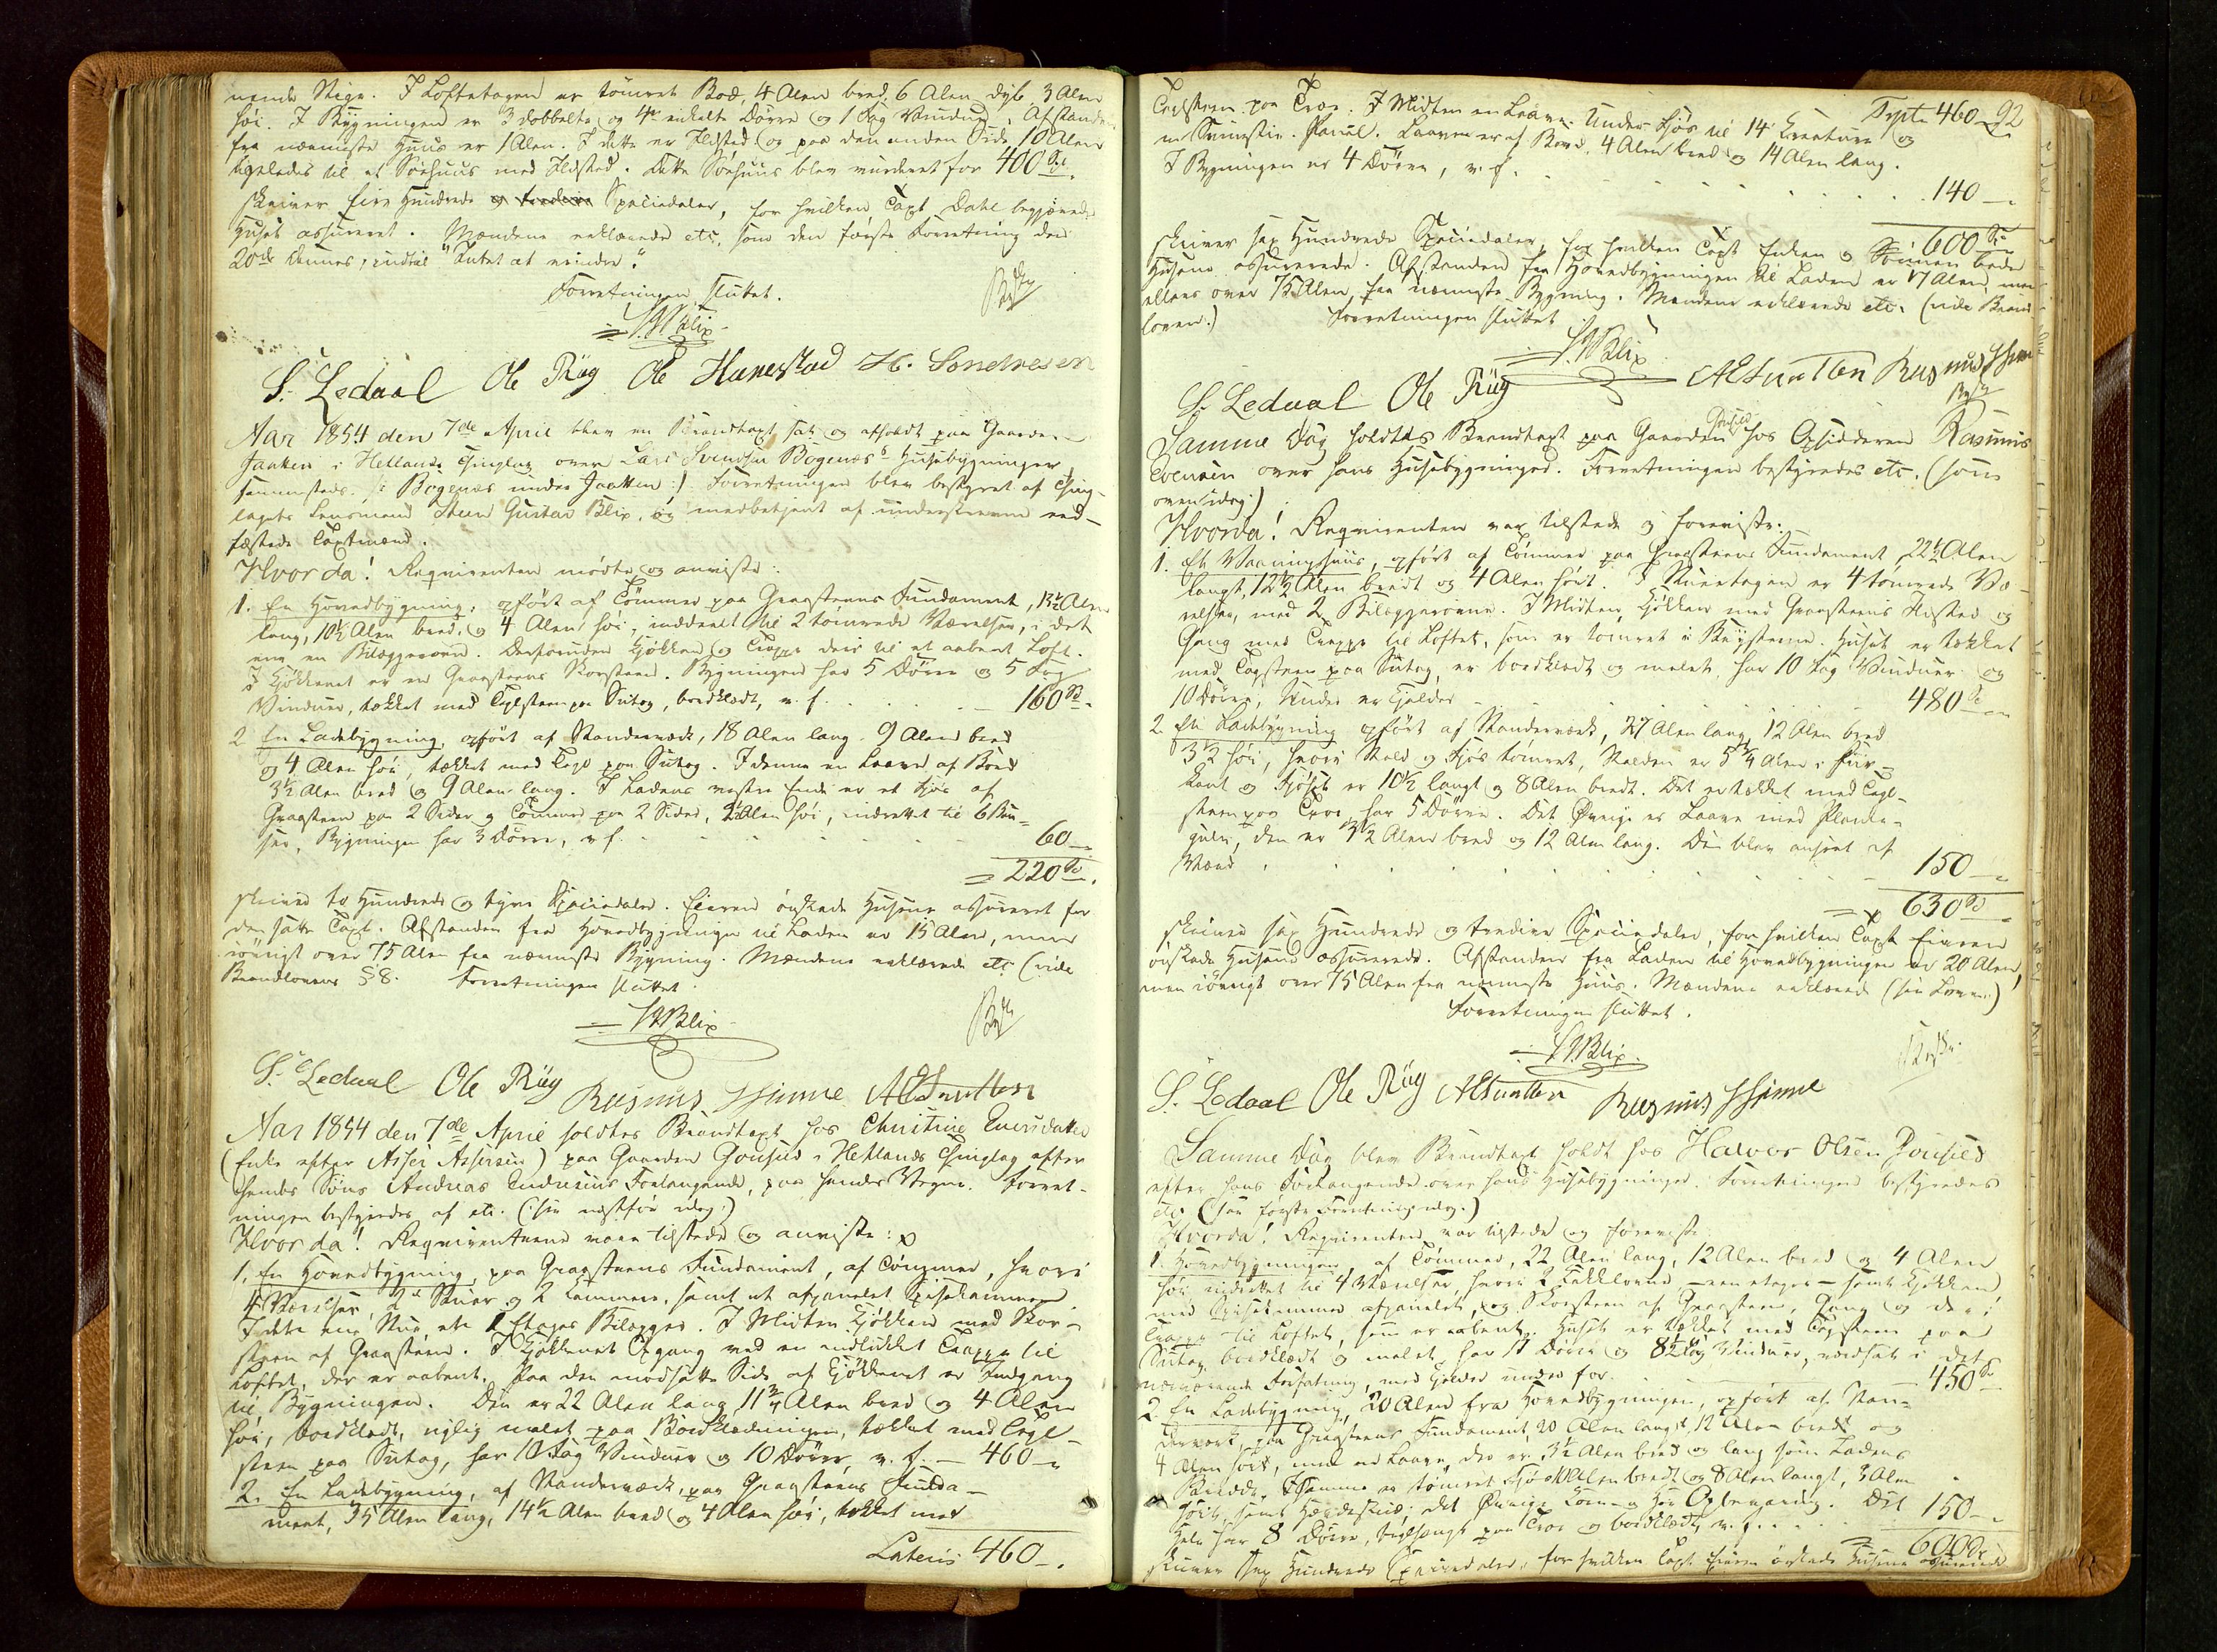 nende Stige. I Loftetagen er tømret Bod, 4 Alen bred, 6 Alen dyb, 3 Alen
høi. I Bygningen er 3 dobbelte og 4re enkelte Dørre og 1 Fag Vindue. Afstanden
fra nærmeste Huus er 1 Alen. I dette er Ildsted (og paa den anden Side 10 Alen
ligeledes til et Søehuus med Ildsted. Dette Søehuus blev vurderet for 400 Sp.
skriver fire Hundrede og tredive Speciedaler, for hvilken Taxt Dahl begjærede
Huset assureret. Mændene erklærede etc. som den første Forretning den
20de dennes, indtil "Intet at erindre."
Forretningen sluttet.
S. G. Blix
S. Ledaal Ole Riig Ole Hanestad H. Sondresen
Aar 1854 den 7de April blev en Brandtaxt sat og afholdt paa Gaarden
Jaatten i Hetlands Thinglag over Lars Svendsen Bogenæs's Huusebygninger
sammesteds (: Bogenæs under Jaatten :). Forretningen blev bestyret af Thing-
lagets Lensmand Steen Gustav Blix, og medbetjent af underskrevne eed-
fæstede Taxtmænd.
Hvorda! Reqvirenten mødte og anviste:
1. En Hovedbygning, opført af Tømmer paa Graasteens Fundament, 13½ Alen
lang, 10½ Alen bred, og 4 Alen høi, inddeelt til 2 tømrede Værelser, i det
ene en Bilæggerovn. Desforuden Kjøkken og Trappe deri til et aabent Loft.
I Kjøkkenet er en Graasteens Skorsteen. Bygningen har 5 Dørre og 5 Fag
Vinduer, tækket med Taglsteen paa Sutag, bordklædt, v. f. 160 Sp.
2 En Ladebygning, opført af Standerværk, 18 Alen lang, 9 Alen bred
og 4 Alen høi, tækket med Tagl paa Sutag. I denne en Laave af Bord
3½ Alen bred og 9 Alen lang. I Ladens vestre Ende er et Fjøs af
Graasteen paa 2 Sider og Tømmer paa 2 Sider, 3 Alen høi, indrettet til 6 Bæu-
ser, Bygningen har 3 Dørre, v. f. 60
= 220 Sp.
skriver to Hundrede og tyve Speciedaler. Eieren ønskede Husene assureret for
den satte Taxt. Afstanden fra Hovedbygningen til Laden er 15 Alen, men
iøvrigt over 75 Alen fra nærmeste Bygning. Mændene erklærede etc (vide
Brandlovens § 8. Forretningen sluttet.
S. G. Blix
S. Ledaal Ole Riig Rasmus Hinne A E Juntten
Aar 1854 den 7de April holdtes Brandtaxt hos Christine Eversdatter
(Enke efter Asser Assersen) paa Gaarden Gousel i Hetlands Thinglag efter
hendes Søns Andreas Endresens Forlangende, paa hendes Vegne. Forret-
ningen bestyredes af etc. (: see næstfør idag :)
Hvorda! Reqvirenterne vare tilstede og anviste:
1. En Hovedbygning, paa Graasteens Fundament, af Tømmer, hvori
4 Værelser, 2de Stuer og 2 Kammere, samt et afpanelet Spisekammer.
I dets ene Stue en 2 Etages Bilægger. I Midten Kjøkken med Skor-
steen af Graasteen. I Kjøkkenet Opgang ved en indlukket Trappe til
Loftet, der er aabent. Paa den modsatte Side af Kjøkkenet er Indgang
til Bygningen. Den er 22 Alen lang, 11¾ Alen bred og 4 Alen
høi, bordklædt, nylig malet paa Bordklædningen, tækket med Tagl-
steen paa Sutag, har 10 Fag Vinduer og 10 Dørre, v. f. — 460
2. En Ladebygning, af Standerværk, paa Graasteens Funda-
ment, 35 Alen lang, 14½ Alen bred og 4 Alen høi, tækket med
Lateris 460
Trpt. 460 92
Taglsteen paa Træe. I Midten en Laave. Under Fjøs til 14 Kreature og
en Svinestie. Laaven er af Bord, 4 Alen bred og 14 Alen lang.
I Bygningen er 4 Dørre, v. f. 140
600 Sp
skriver sex Hundrede Speciedaler, for hvilken Taxt Enken og Sønnen bade
Husene assurerede. Afstanden fra Hovedbygningen til Laden er 17 Alen, men
ellers over 75 Alen fra nærmeste Bygning. Mændene erklærede etc. (vide Brand-
loven.) Forretningen sluttet
S. G. Blix
S. Ledaal Ole Riig A E Juntten Rasmus Hinne
Samme Dag holdtes Brandtaxt paa Gaarden Gousel hos Opsidderen Rasmus
Evensen over hans Huusebygninger. Forretningen bestyredes etc. (som
oven idag.)
Hvorda! Reqvirenten var tilstede og foreviste:
1. Et Vaaningshuus, opført af Tømmer paa Graasteens Fundament, 22½ Alen
langt, 12½ Alen bredt og 4 Alen høit. I Stueetagen er 4 tømrede Væ-
relser, med 2 Bilæggerovne. I Midten Kjøkken med Graasteens Ildsted og
Gang med Trappe til Loftet, som er tømret i Røysterne. Huset er tækket
med Tagsteen paa Sutag, er bordklædt og malet, har 10 Fag Vinduer og
10 Dørre, Under er Kjelder 480 Sp
2. En Ladebygning opført af Standerværk, 27 Alen lang, 12 Alen bred
3½ høi, hvori Stald og Fjøs tømret, Stalden er 5¼ Alen i Fiir-
kant og Fjøset er 10½ langt og 8 Alen bredt. Det er tækket med Tagl-
steen paa Træe, har 5 Dørre. Det Øvrige er Laave med Planke-
gulv, den er 4½ Alen bred og 12 Alen lang. Den blev anført af
Mænd 150
= 630 Sp
skriver sex Hundrede og tredive Speciedaler, for hvilken Taxt Eieren
ønskede Husene assurerede. Afstanden fra Laden til Hovedbygningen er 20 Alen,
men iøvrigt over 75 Alen fra nærmeste Huus. Mændene erklærede (see Loven)
Forretningen sluttet.
S. G. Blix.
S. Ledaal Ole Riig A E Juntten Rasmus Hinne
Samme Dag blev Brandtaxt holdt hos Halvor Olsen Gousel
efter hans Forlangende over hans Huusebygninger. Forretningen bestyredes
etc (see første Forretning idag.)
Hvorda! Reqvirenten var tilstede og foreviste
1. Hovedbygningen, af Tømmer, 22 Alen lang, 12 Alen bred og 4 Alen
høi, indrettet til 4 Værelser, hvori 2 Kakkelovne — een etages — samt Kjøkken
med Spisekammer afpanelet, og Skorsteen af Graasteen, Gang og deri
Trappe til Loftet, som er aabent. Huset er tækket med Tagsteen paa
Sutag, bordklædt og malet, har 11 Dørre og 8½ Fag Vinduer, vurderet i det
nærværende Forfatning, med Kjelder under for. 450 Sp
2. En Ladebygning, 20 Alen fra Hovedbygningen, opført af Stan-
derværk, paa Graasteens Fundament, 20 Alen langt, 12 Alen bredt og
4 Alen høit, med en Laave, der er 3½ Alen bred og lang som Ladens
Bredde. I Samme er tømret Fjøs Alen bredt og 8 Alen langt, 3 Alen
høit, samt Det Øvrige Korn og Høe Opbevaring. Det
Hele har 8 Dørre, teglhængt paa Træe og bordklædt, v. f. 150
= 600 Sp
skriver sex Hundrede Speciedaler, for hvilken Taxt Eieren ønskede Husene assurerede